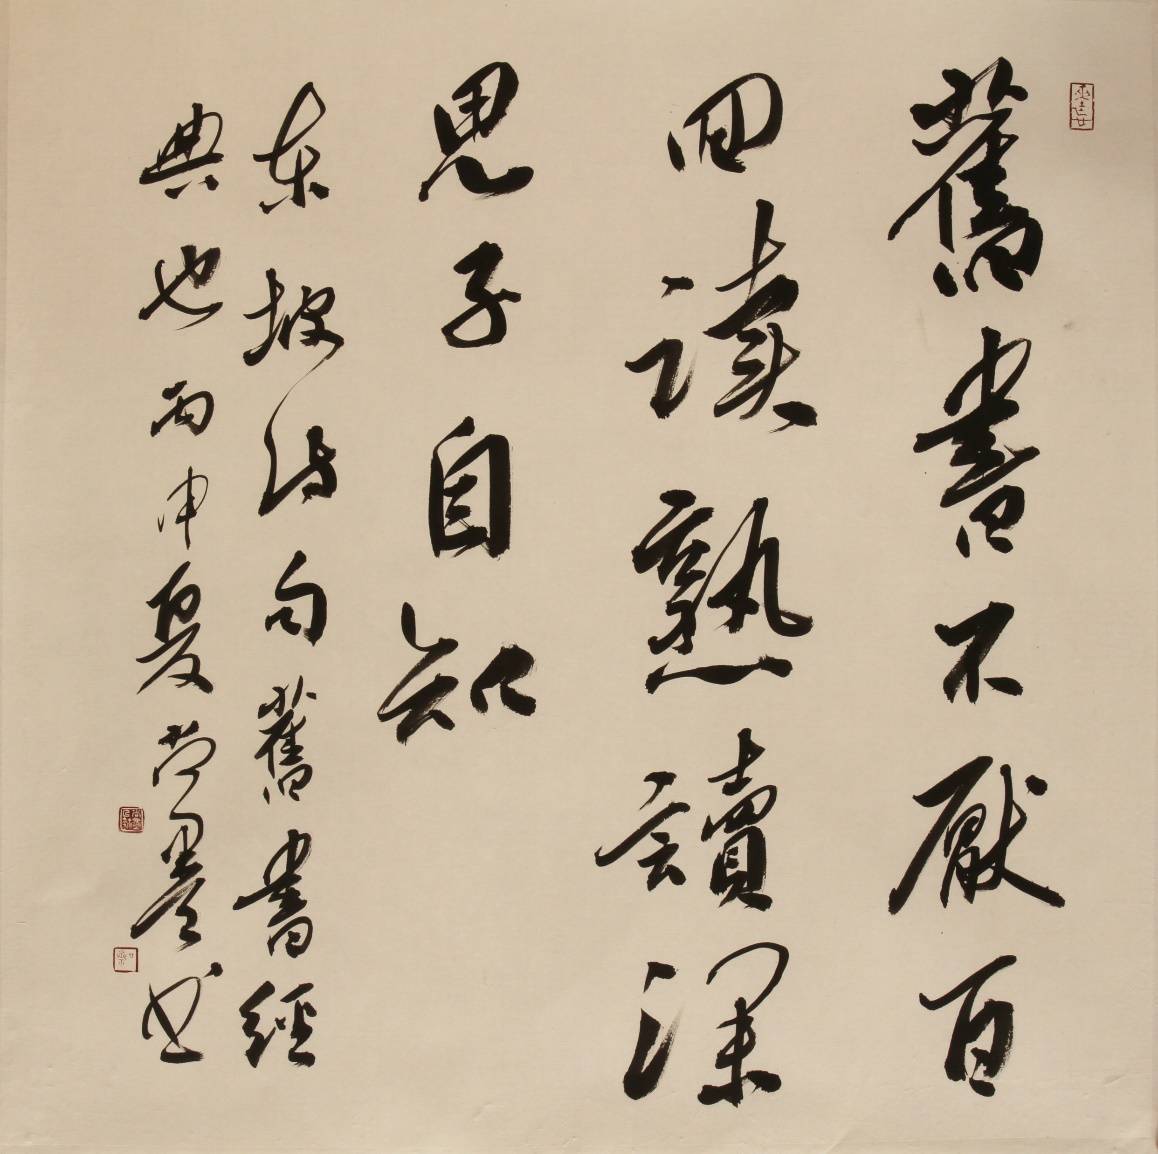 舊書不厭百
回讀熟讀深
思子自知
東坡詩句舊書經
典也丙申夏尚墨书